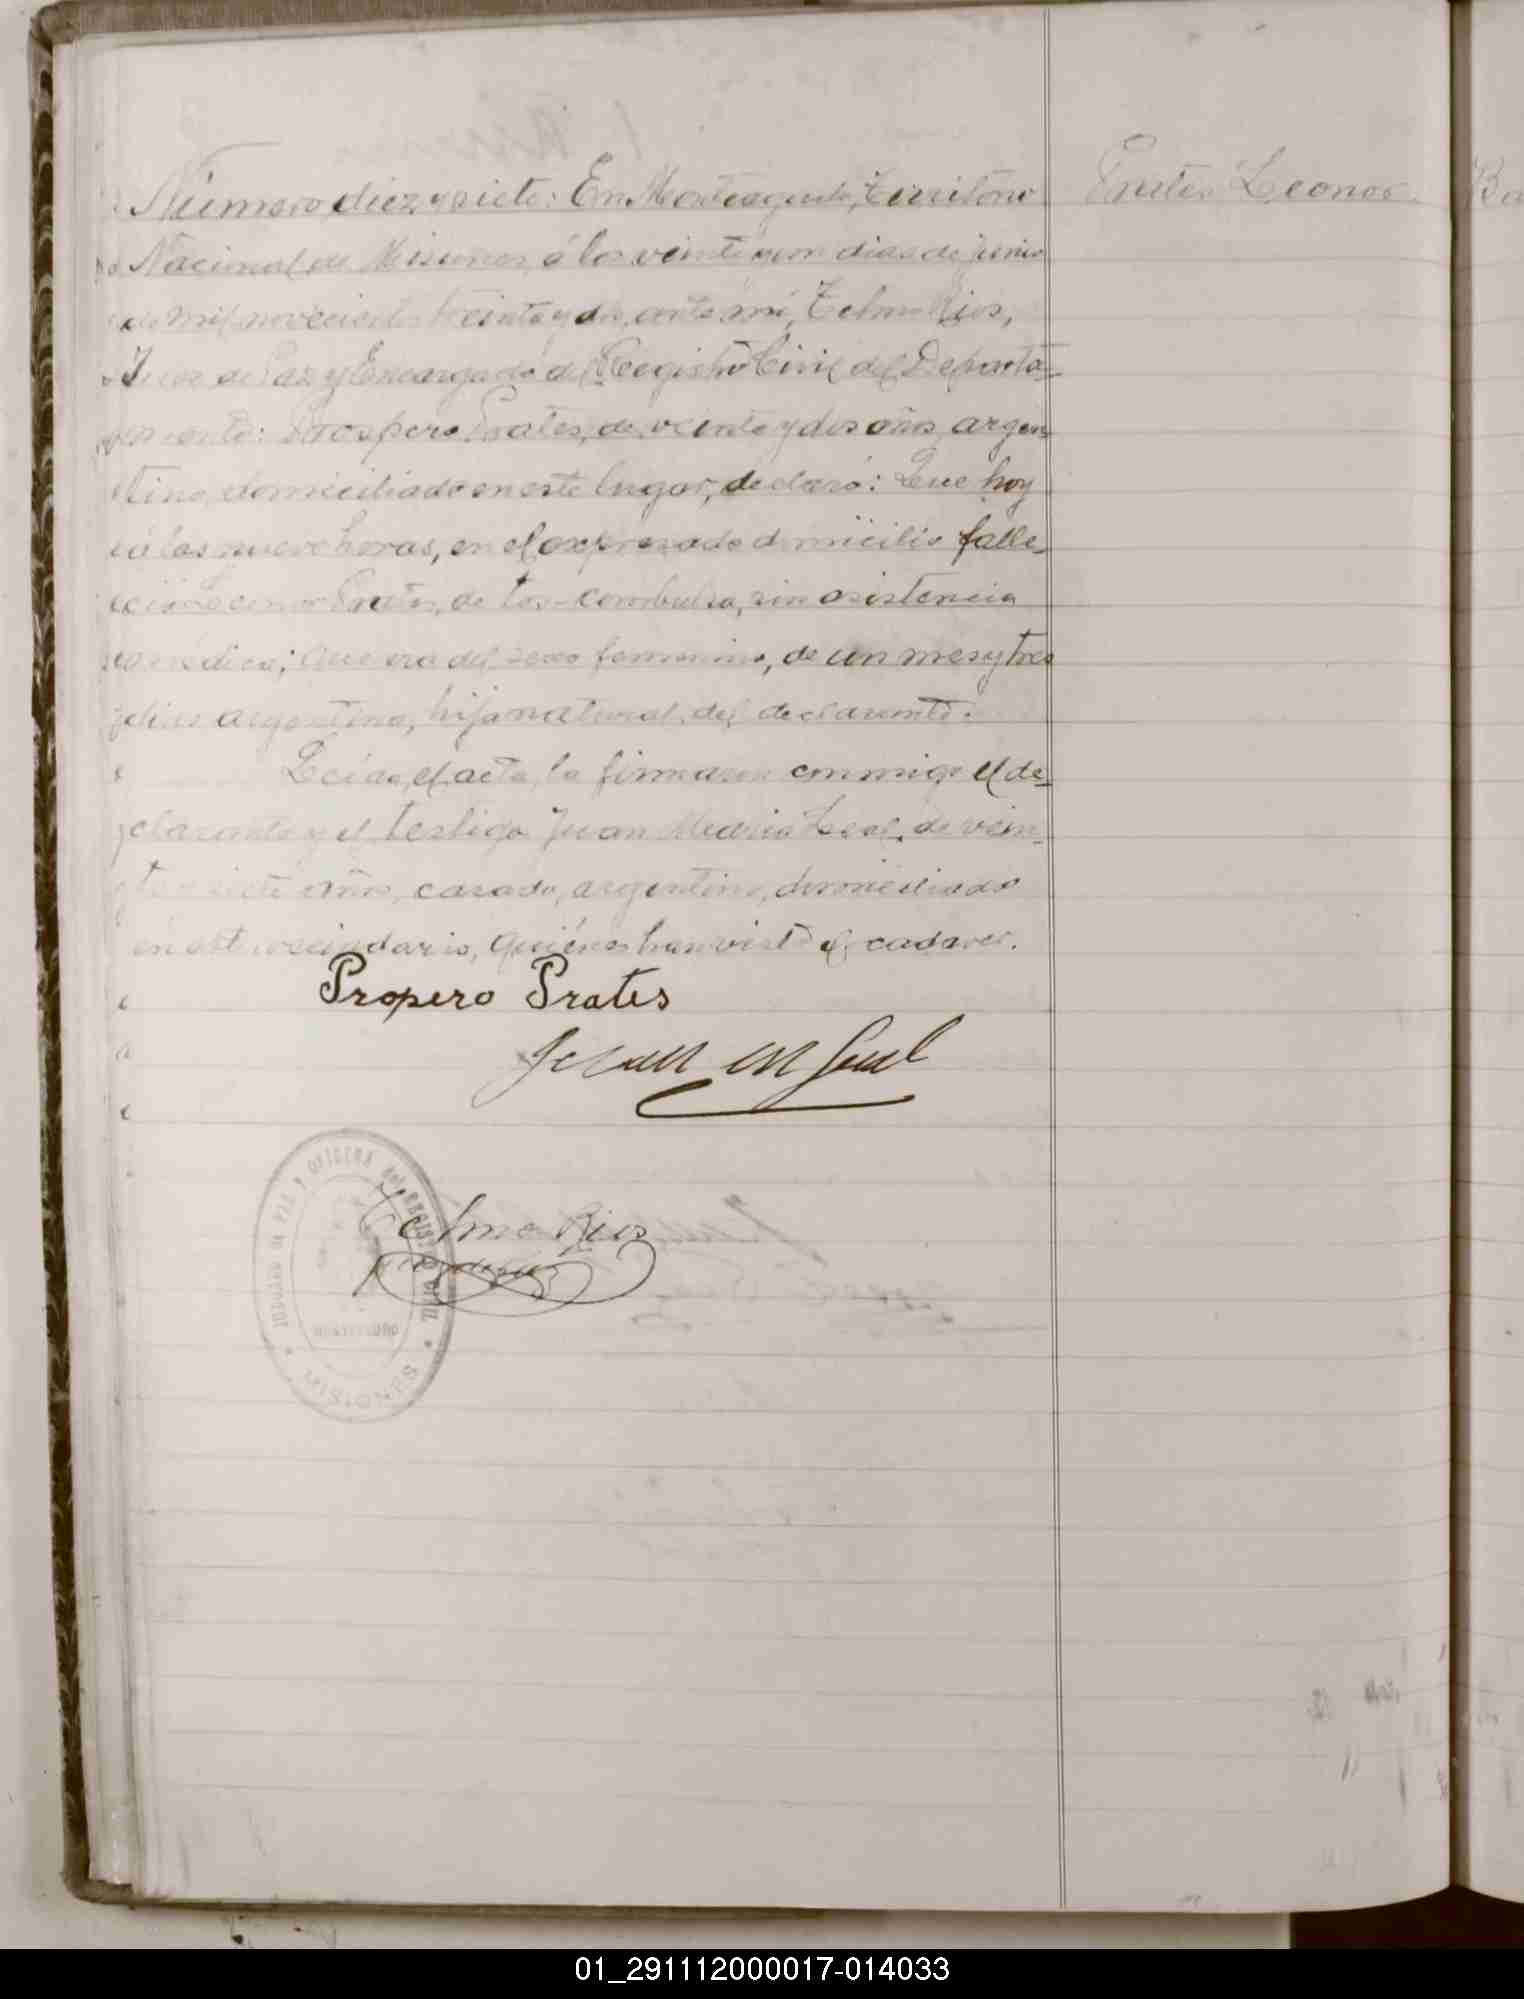 Número diez y siete: En Monteagudo, Territorio
Prates Leonor
Nacional de Misiones, á los veinte y un dias de Junio
de mil novecientos treinta y dos, ante mí, Telmo Rios,
Juez de Paz y Encargado del Registro Civil del Departa-
mento: Prospero Prates, de veinte y dos años, argen-
tino, domiciliado en este lugar, declaró: Que hoy
á las nueve horas, en el expresado domicilio falle-
ció Leonor Prates, de tos-combulsa, sin asistencia
médica; que era del sexo femenino, de un mes y tres
dias argentina, hija natural del declarante.
Leida el acta, la firmaron conmigo el de-
clarante y el testigo Juan Maria Leal, de vein-
te y siete años, casado, argentino, domiciliado
en este vecindario, quiénes han visto el cadaver.
Propero Prates
Juan M Leal
Telmo Rios
Juez de Paz
JUZGADO DE PAZ Y OFICINA del REGISTRO CIVIL
MONTEAGUDO
MISIONES
Ba
01_291112000017-014033